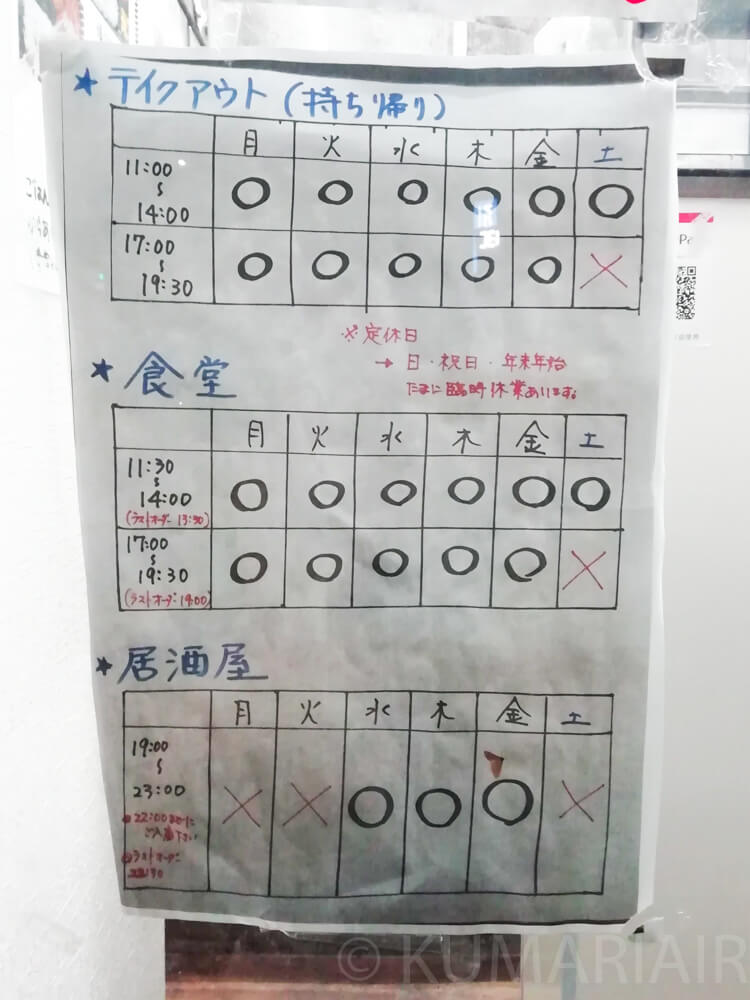 ★テイクアウト(持ち帰り)
月 火 水 木 金 土
11:00
~
14:00
○ ○ ○ ○ ○ ○
17:00
~
19:30
○ ○ ○ ○ ○ ×
※定休日
→ 日・祝日・年末年始
たまに臨時休業あります。
★食堂
月 火 水 木 金 土
11:30
~
14:00
(ラストオーダー 13:30)
○ ○ ○ ○ ○ ○
17:00
~
19:30
(ラストオーダー:19:00)
○ ○ ○ ○ ○ ×
★居酒屋
月 火 水 木 金 土
19:00
~
23:00
22:00までに
ご入店下さい
ラストオーダー:
22:30
× × ○ ○ ○ ×
ごはん
Pa
© KUMARIAIR